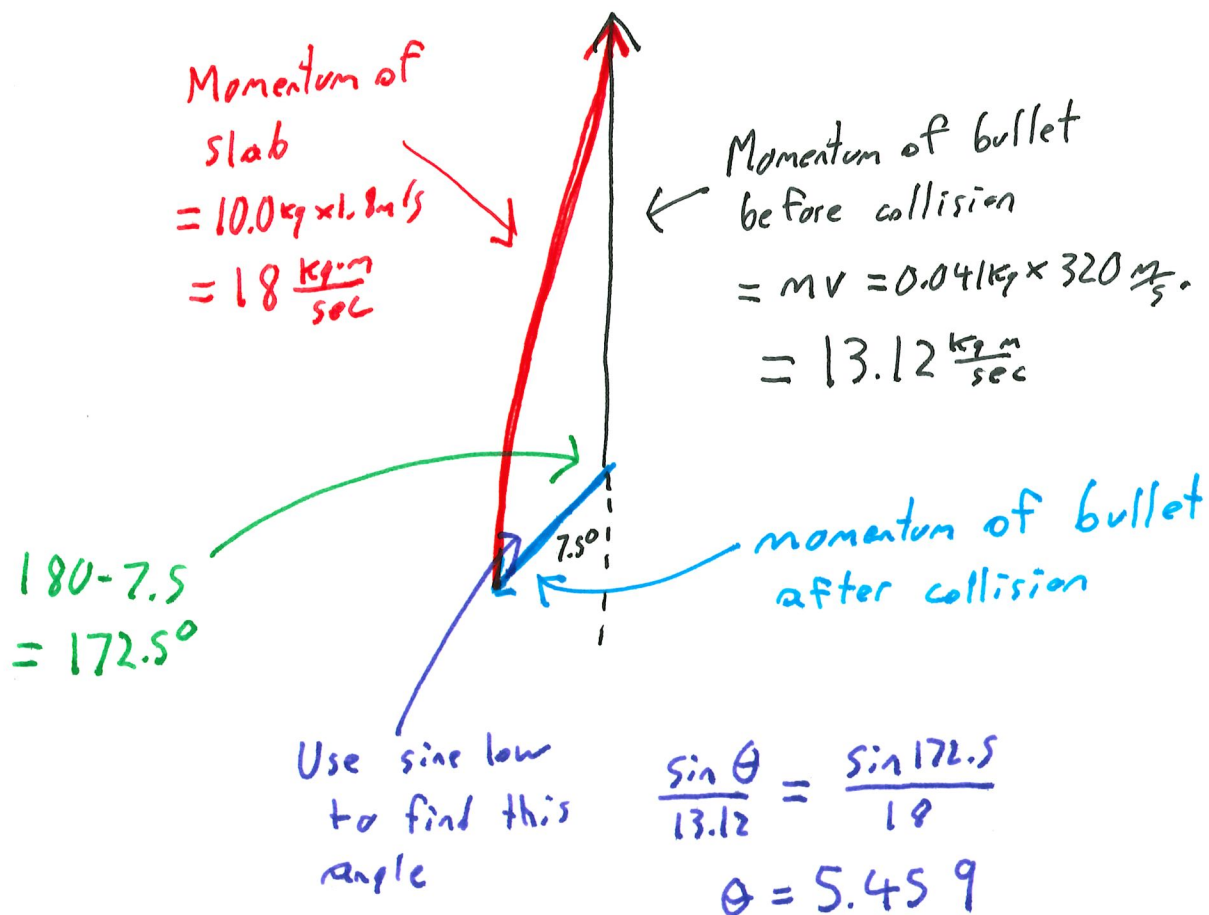 Momentum of
slab
= 10.0 kg x 1.8 m/s
= 18 kg·m/sec
Momentum of bullet
before collision
= mv = 0.041kg × 320 m/s.
= 13.12 kg m/sec
7.5°
momentum of bullet
after collision
180-7.5
= 172.5°
Use sine low
to find this
angle
sin θ/13.12 = sin 172.5/18
θ = 5.459